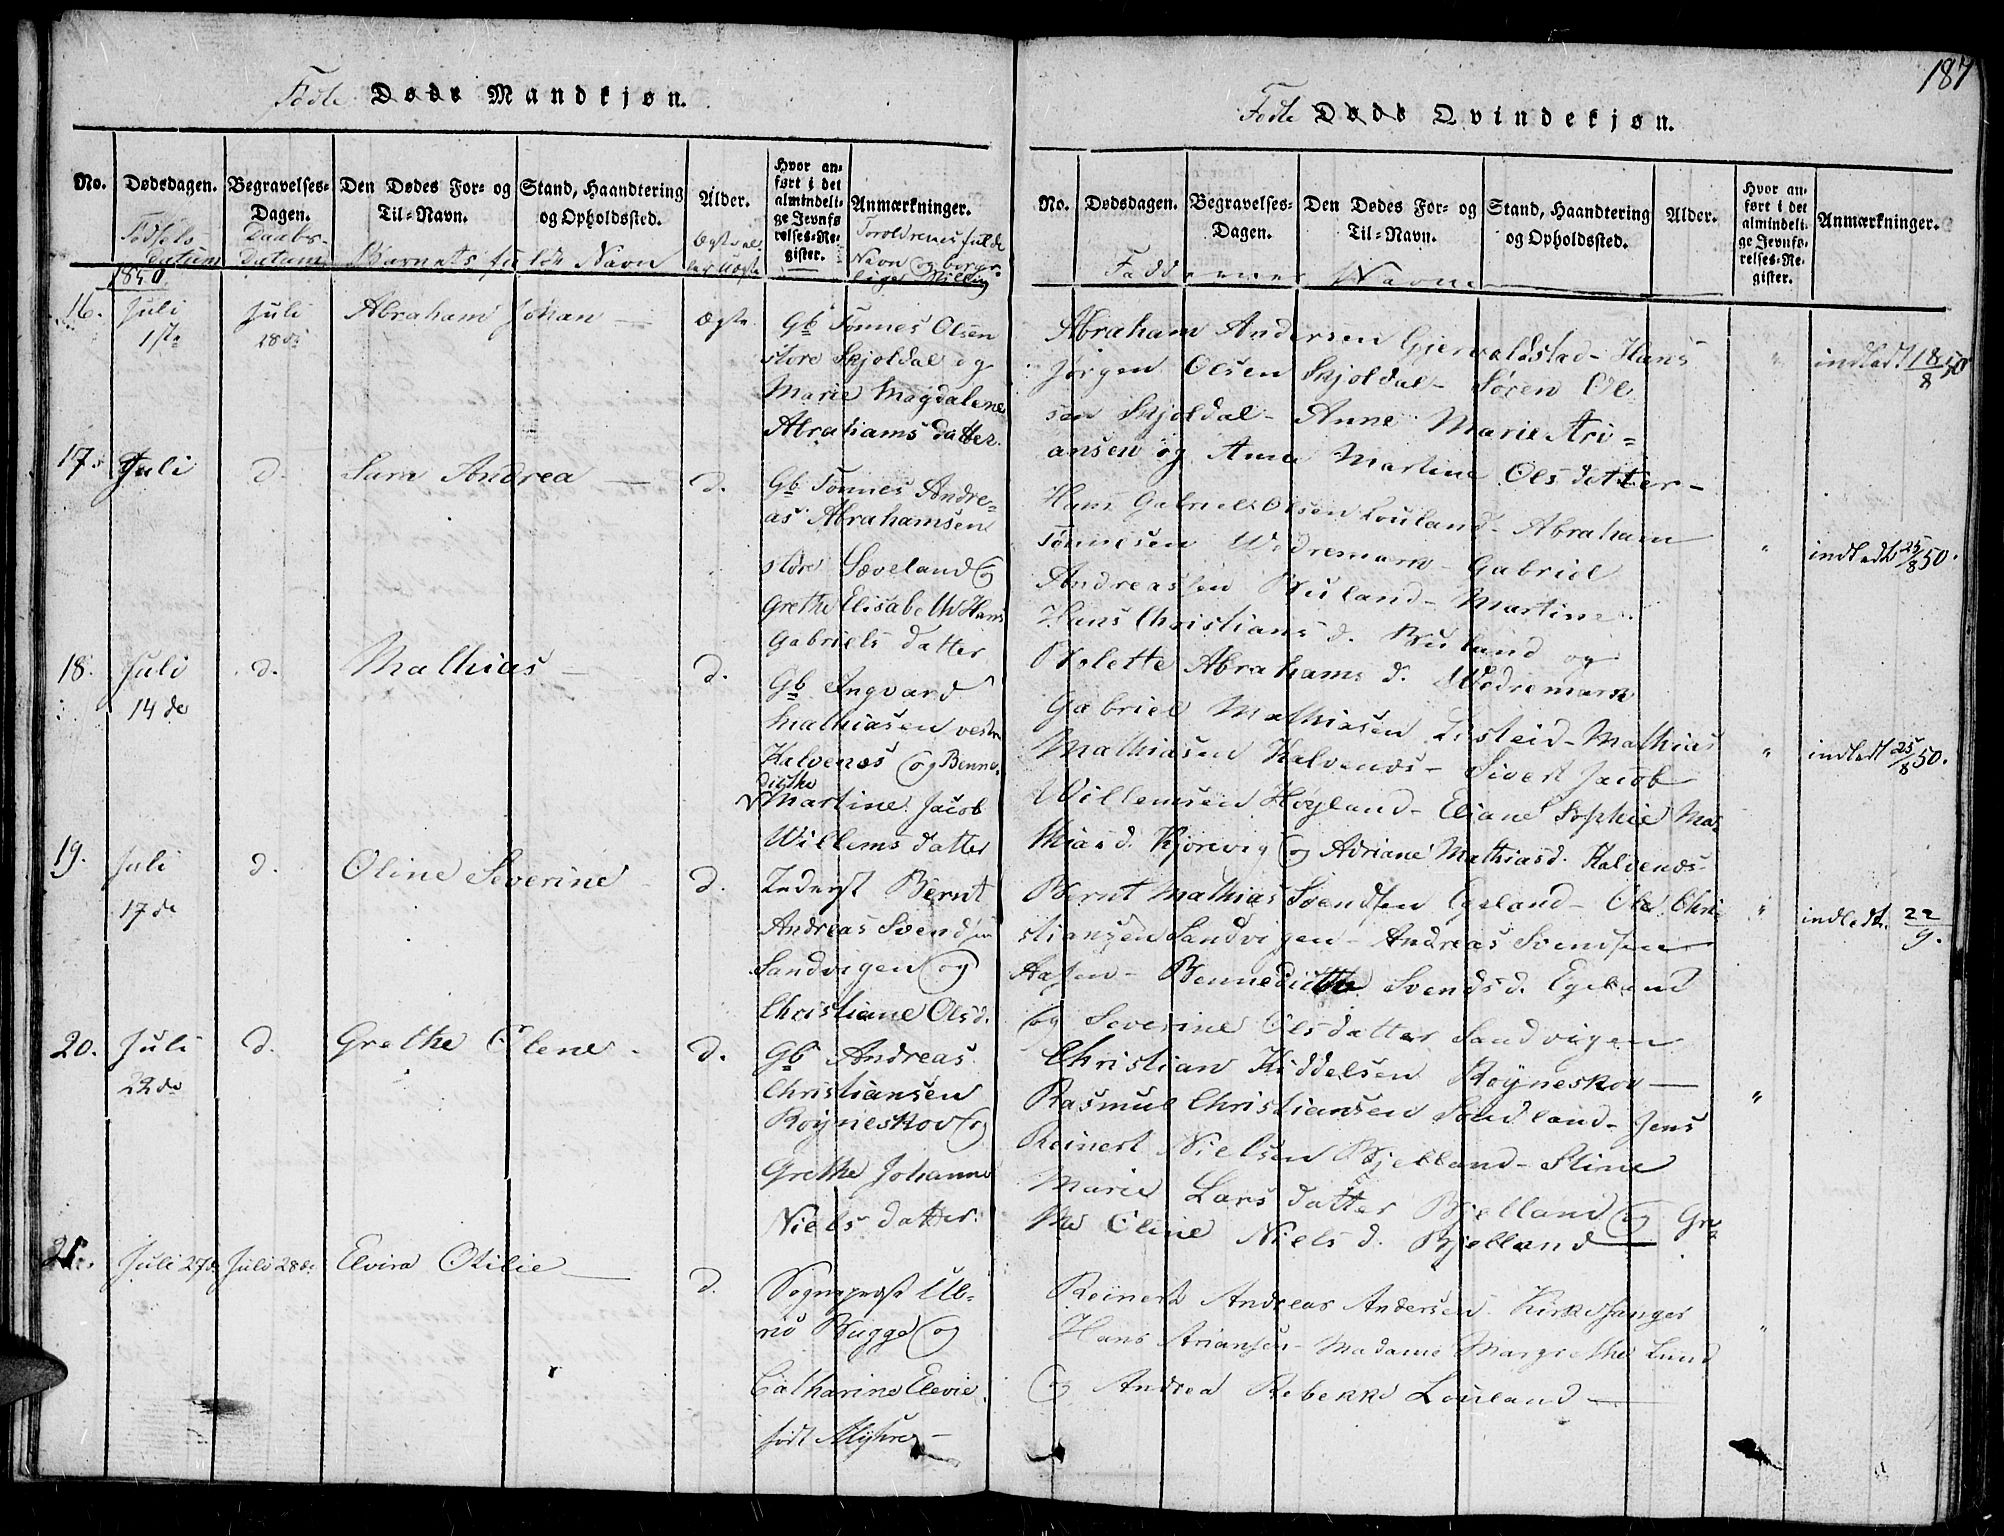 187
Fødte Døde Mandkjøn.
No. Dødsdagen. Begravelses-Dagen. Den Dødes For- og Til-Navn. Stand, Haandtering og Opholdssted. Alder. Hvor anført i det almindelige Jevnførelses-Register. Anmærkninger.
Fødsels Datum Daabs-Datum Barnets fulde Navn Ægte eller Uægte Foreldrenes fulde Navn og borgerlige Stilling
1850
16. Juli 1ste Juli 28de Abraham Johan — Ægte
Gb Tønnes Olsen
store Skjoldal og
Marie Magdalene
Abrahams datter.
17. Juli d. Sara Andrea — d.
Gb Tønnes Andre-
as Abrahamsen
store Sæveland og
Grethe Elisabeth Hans
Gabriels datter
18. Juli 14de d. Mathias — d.
Gb Ingvard
Mathiasen vestre
Kalvenes og Benne-
dicthe
Martine Jacob
Willems datter
19. Juli 17de d. Oline Severine d.
Inderst Bernt
Andreas Svendsen
Sandvigen og
Christiane Olsd.
20. Juli 22de d. Grethe Olene d.
Gb Andreas
Christiansen
Røyneskov og
Grethe Johanne
Niels datter.
21. Juli 27de Juli 28de Elvira Otilie — d.
Sognepræst Ul-
rik Bugge og
Catharine Elevie
født Myhre —
Fødte Døde Qvindekjøn.
No. Dødsdagen. Begravelses-Dagen. Den Dødes For- og Til-Navn. Stand, Haandtering og Opholdssted. Alder. Hvor anført i det almindelige Jevnførelses-Register. Anmærkninger.
Faddernes Navne
Abraham Andersen Gjervoldstad - Hans
Jørgen Olsen Skjoldal - Søren Ol
sen Skjoldal - Anne Marie Ari-
ansen og Anne Martine Olsdatter -
" indledt 18/8 50
Hans Gabriel Olsen Louland - Abraham
Tønnesen Wedremark - Gabriel
Andreassen Buland - Martine
Hans Christians d. Buland og
Bolette Abrahams d. Wedremark
" indledt 25/8 50.
Gabriel Mathiasen Listeid - Mathias
Mathiasen Kalvenes - Sivert Jacob
Willemsen Høyland - Eliane Sophie Mat
thias d. Kjørevig og Adriane Mathiasd. Kalvenes
" indledt 25/8 50.
Bernt Mathias Svendsen Egeland - Ole Chri
stiansen Sandvigen - Andreas Svendsen
Aasen - Bennedicthe Svendsd. Egeland
og Severine Olsdatter Sandvigen
" indledt. 22/9.
Christian Kiddelsen Røyneskov —
Rasmus Christiansen Sandland - Jens
Reinert Nielsen Bjelland - Stine
Marie Larsdatter Bjelland og Gre
the Oline Niels d. Bjelland —
"
Reinert Andreas Andersen - Kirkesanger
Hans Ariansen - Madame Margrethe Lund
og Andrea Rebekka Louland —
"